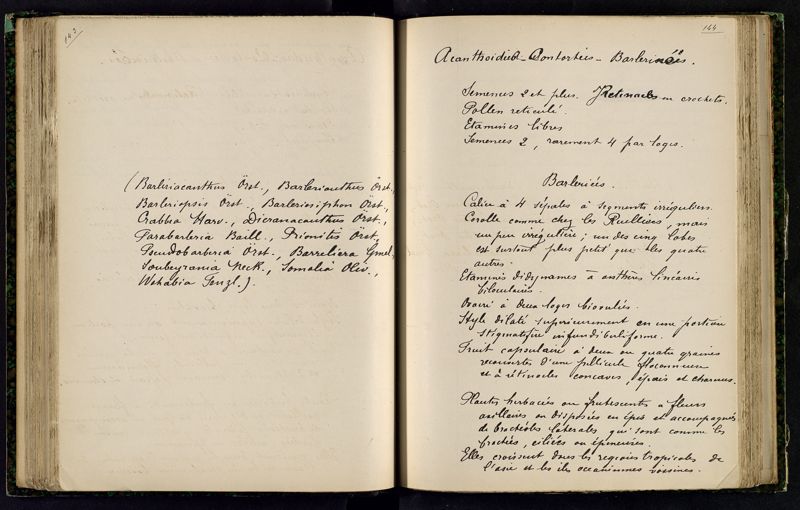 143
(Barleriacanthus Örst., Barlerianthus Örst.,
Barleriopsis Örst., Barleriosiphon Örst.,
Crabbea Harv., Dicranacanthus Örst.,
Parabarleria Baill., Prionitis Örst.,
Pseudobarleria Örst., Barreliera Gmel.,
Soubeyrania Neck., Somalia Oliv.,
Wahabia Fenzl.).
144
Acanthoidées - Contortées - Barleriées.
Semences 2 et plus. Rétinacles en crochets.
Pollen reticulé.
Etamines libres
Semences 2, rarement 4 par loges.
Barleriées.
Calice à 4 sépales à segments irréguliers.
Corolle comme chez les Ruelliées, mais
un peu irrégulière ; un des cinq lobes
est surtout plus petit que les quatre
autres.
Etamines didynames à anthères linéaires
biloculaires.
Ovaire à deux loges biovulées.
Style dilaté supérieurement en une portion
stigmatifère infundibuliforme.
Fruit capsulaire à deux ou quatre graines
recouvertes d'une pellicule floconneuse
et à rétinacles concaves, épais et charnus.
Plantes herbacées ou frutescentes à fleurs
axillaires ou disposées en épis et accompagnés
de bractéoles latérales qui sont comme les
bractées, ciliées ou épineuses.
Elles croissent dans les régions tropicales de
l'asie et les iles océaniennes voisines.